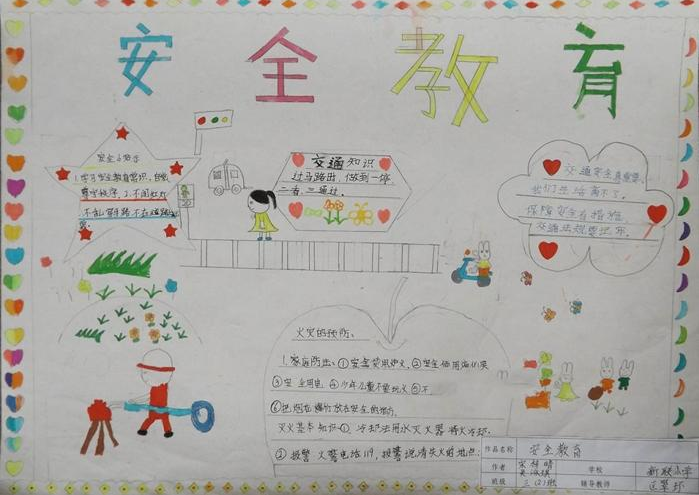 安全教育
安全小常识
1.学习安全教育常识,自觉
遵守秩序。2.不闯红灯
不乱穿马路不在道路
交通知识
过马路出,做到一停,
二看,三通过。
交通安全真重要,
我们生活离不了。
保障安全有措施,
交通法规要记牢。
火灾的预防。
1.家庭防火:①安全使用炉火,②安全使用液化
③安全用电,④少年儿童不要玩火⑤不
火灾基本知识①,冷却法用水灭火器
②报警 火警电话119,报警说清失火的地点。
作品名称 安全教育
作者 学校 新联小学
班级 三(2)班 辅导教师